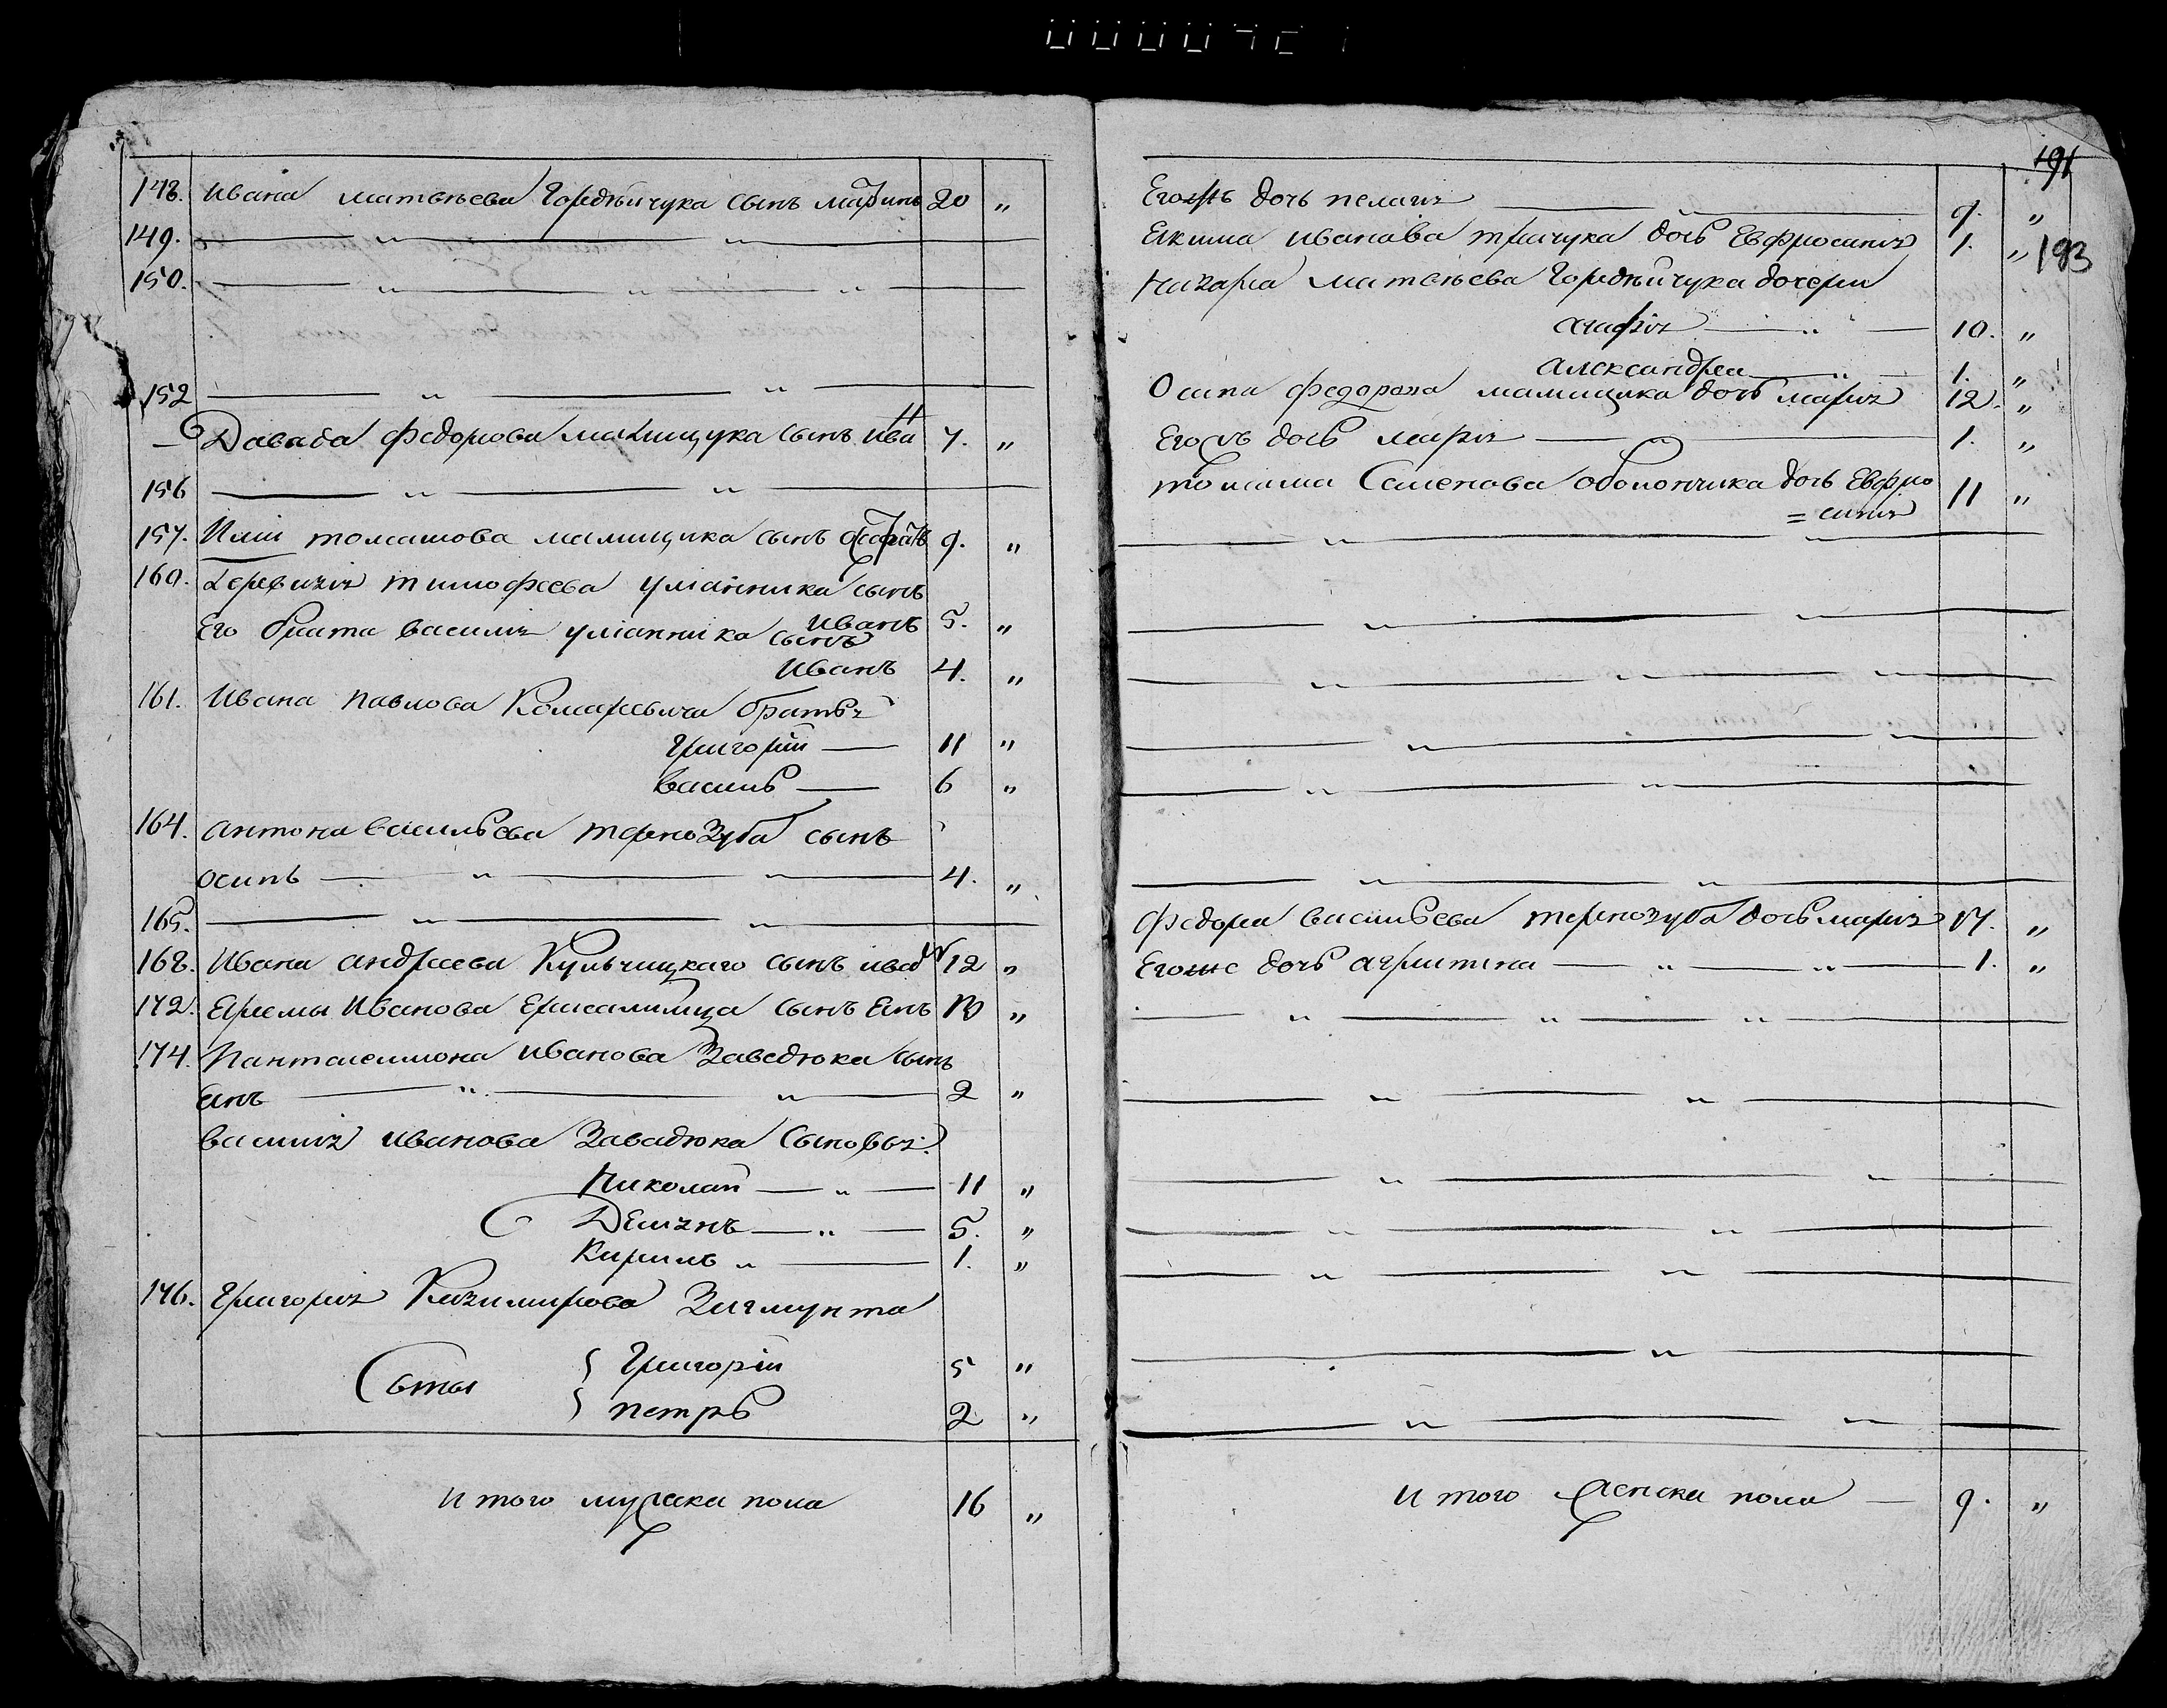 148. Ивана Матвѣева Гордѣйчука сынъ Мартинъ 20 „
149. — „ — „ —
150. — „ — „ — „ —
152 — „ — „ —
Давида Федорова Малищука сынъ Ива 7. „
156 — „ — „ —
157. Иліи Томашова Малищика сынъ 9. „
160. Тимофеева Уліанника сынъ
Иванъ 5. „
Его брата Василия Уліанника сынъ
Иванъ 4. „
161. Ивана Павлова Комаревича братья
Григорій — 11 „
Василь — 6 „
164. Антона Васильева Тернозуба сынъ
Осипъ — „ — „ — 4. „
165. — „ — „ —
168. Ивана Андреева Кульчицкаго сынъ Иванъ 12 „
172. Еремы Иванова сынъ Янъ 13 „
174. Панталеимона Иванова Заведюка сынъ
Янъ — „ — „ — 2 „
Василия Иванова Завадюка сыновья:
Николай — „ — 11 „
Демянъ — „ — 5. „
Кирилъ „ — 1. „
176. Григорія Казимирова Зигмунта
Григорій 5 „
Петръ 2 „
Итого мужска пола 16 „
191
193
Егожъ дочь Пелагия — „ — 9. „
Якима Иванова дочь Евфросиния 1. „
Назара Матвѣева Гордѣйчука дочери
Агафия — „ — 10. „
Александра — „ — 1. „
Осипа Федорова Малищика дочь Мария 12. „
Егожъ дочь Мария — „ — 1. „
Томаша Семенова Оболончика дочь Евфро
= синия 11 „
— „ — „ —
— „ — „ —
— „ — „ — „ —
— „ — „ —
— „ — „ —
— „ — „ —
Федора Васильева Тернозуба дочь Мария 17. „
Егоже дочь Агрипина — „ — „ — 1. „
— „ — „ — „ —
— „ — „ —
— „ — „ —
— „ — „ —
— „ — „ —
— „ —
— „ — „ —
Итого женска пола — 9. „